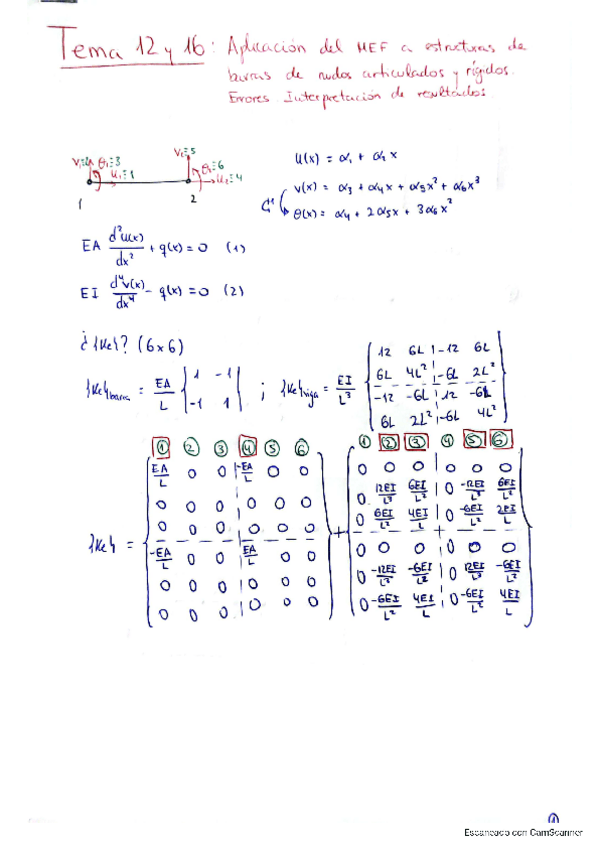 Tema 12 y 16: Aplicación del MEF a estructuras de
barras de nudos articulados y rígidos.
Errores. Interpretación de resultados.
θ₁≡3
u₁≡1
V₂≡5
θ₂≡6
u₂≡4
1
2
u(x) = α₁ + α₂ x
v(x) = α₃ + α₄x + α₅x² + α₆x³
C¹
θ(x) = α₄ + 2α₅x + 3α₆x²
EA d²u(x)/dx² + q(x) = 0 (1)
EI d⁴v(x)/dx⁴ - q(x) = 0 (2)
¿{Ke}? (6x6)
{Ke}barra = EA/L { 1 -1
-1 1 } ; {Ke}viga = EI/L³
12 6L -12 6L
6L 4L² -6L 2L²
-12 -6L 12 -6L
6L 2L² -6L 4L²
① ② ③ ④ ⑤ ⑥
EA/L 0 0 -EA/L 0 0
0 0 0 0 0 0
0 0 0 0 0 0
-EA/L 0 0 EA/L 0 0
0 0 0 0 0 0
0 0 0 0 0 0
{Ke} =
+
① ② ③ ④ ⑤ ⑥
0 0 0 0 0 0
0 12EI/L³ 6EI/L² 0 -12EI/L³ 6EI/L²
0 6EI/L² 4EI/L 0 -6EI/L² 2EI/L
0 0 0 0 0 0
0 -12EI/L³ -6EI/L² 0 12EI/L³ -6EI/L²
0 -6EI/L² 4EI/L 0 -6EI/L² 4EI/L
Escaneado con CamScanner